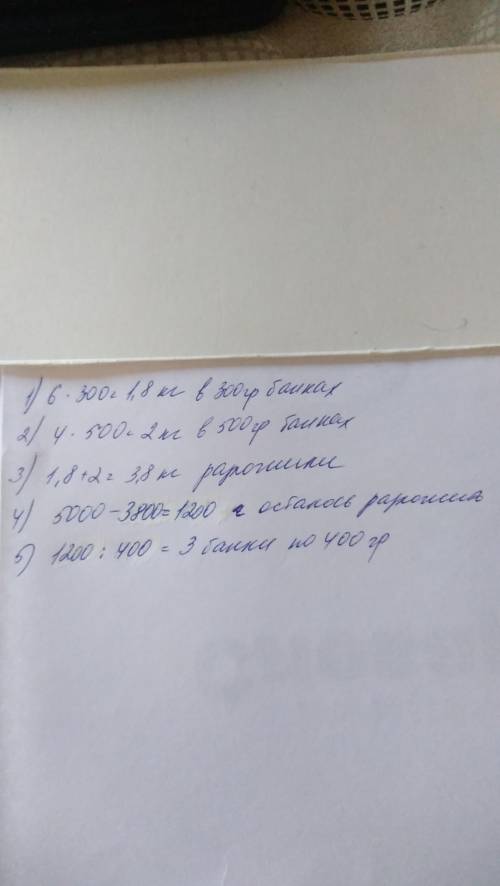 1) 6 · 300 = 1,8 кг в 300гр банках
2) 4 · 500 = 2 кг в 500гр банках
3) 1,8 + 2 = 3,8 кг разложили
4) 5000 - 3800 = 1200 г осталось разложить
5) 1200 : 400 = 3 банки по 400 гр